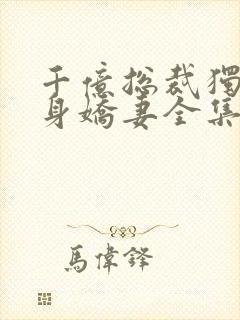 千億総裁獨
身嬌妻全集
馬偉鋒